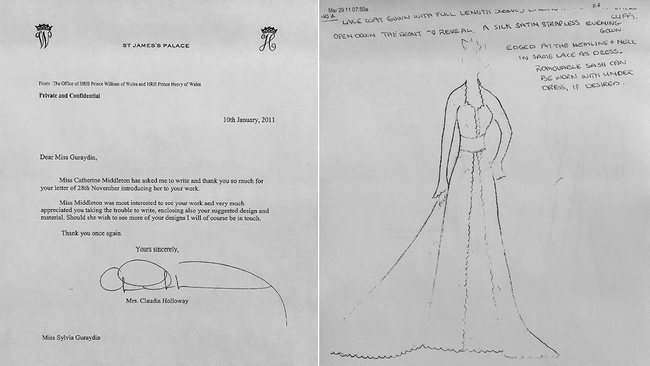 W
H
ST JAMES'S PALACE
From: The Office of HRH Prince William of Wales and HRH Prince Henry of Wales
Private and Confidential
10th January, 2011
Dear Miss Guraydin,
Miss Catherine Middleton has asked me to write and thank you so much for
your letter of 28th November introducing her to your work.
Miss Middleton was most interested to see your work and very much
appreciated you taking the trouble to write, enclosing also your suggested design and
material. Should she wish to see more of your designs I will of course be in touch.
Thank you once again.
Yours sincerely,
Mrs. Claudia Holloway
Miss Sylvia Guraydin
Mar 29 11 07:60a
p.4
LACE COAT GOWN WITH FULL LENGTH
CUFFS.
OPEN DOWN THE FRONT TO REVEAL A SILK SATIN STRAPLESS EVENING
GOWN
EDGED AT THE HEMLINE + NECK
IN SAME LACE AS DRESS.
REMOVABLE SASH CAN
BE WORN WITH UNDER
DRESS, IF DESIRED.